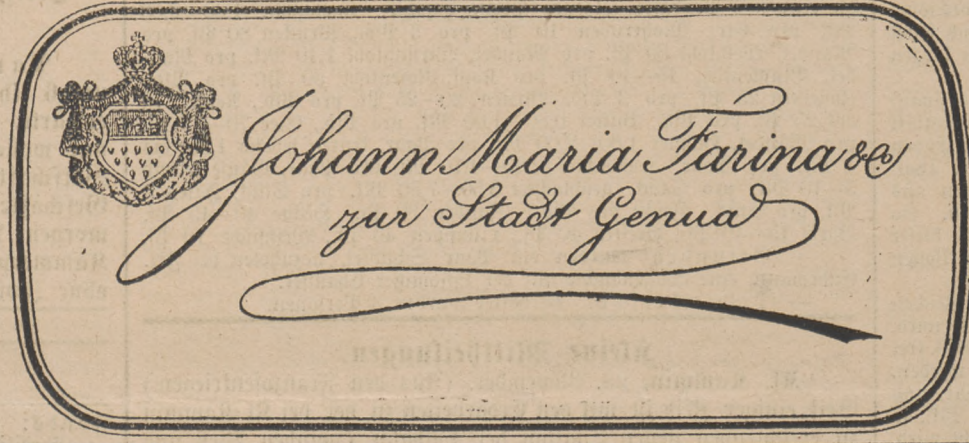 Johann Maria Farina &
zur Stadt Genua